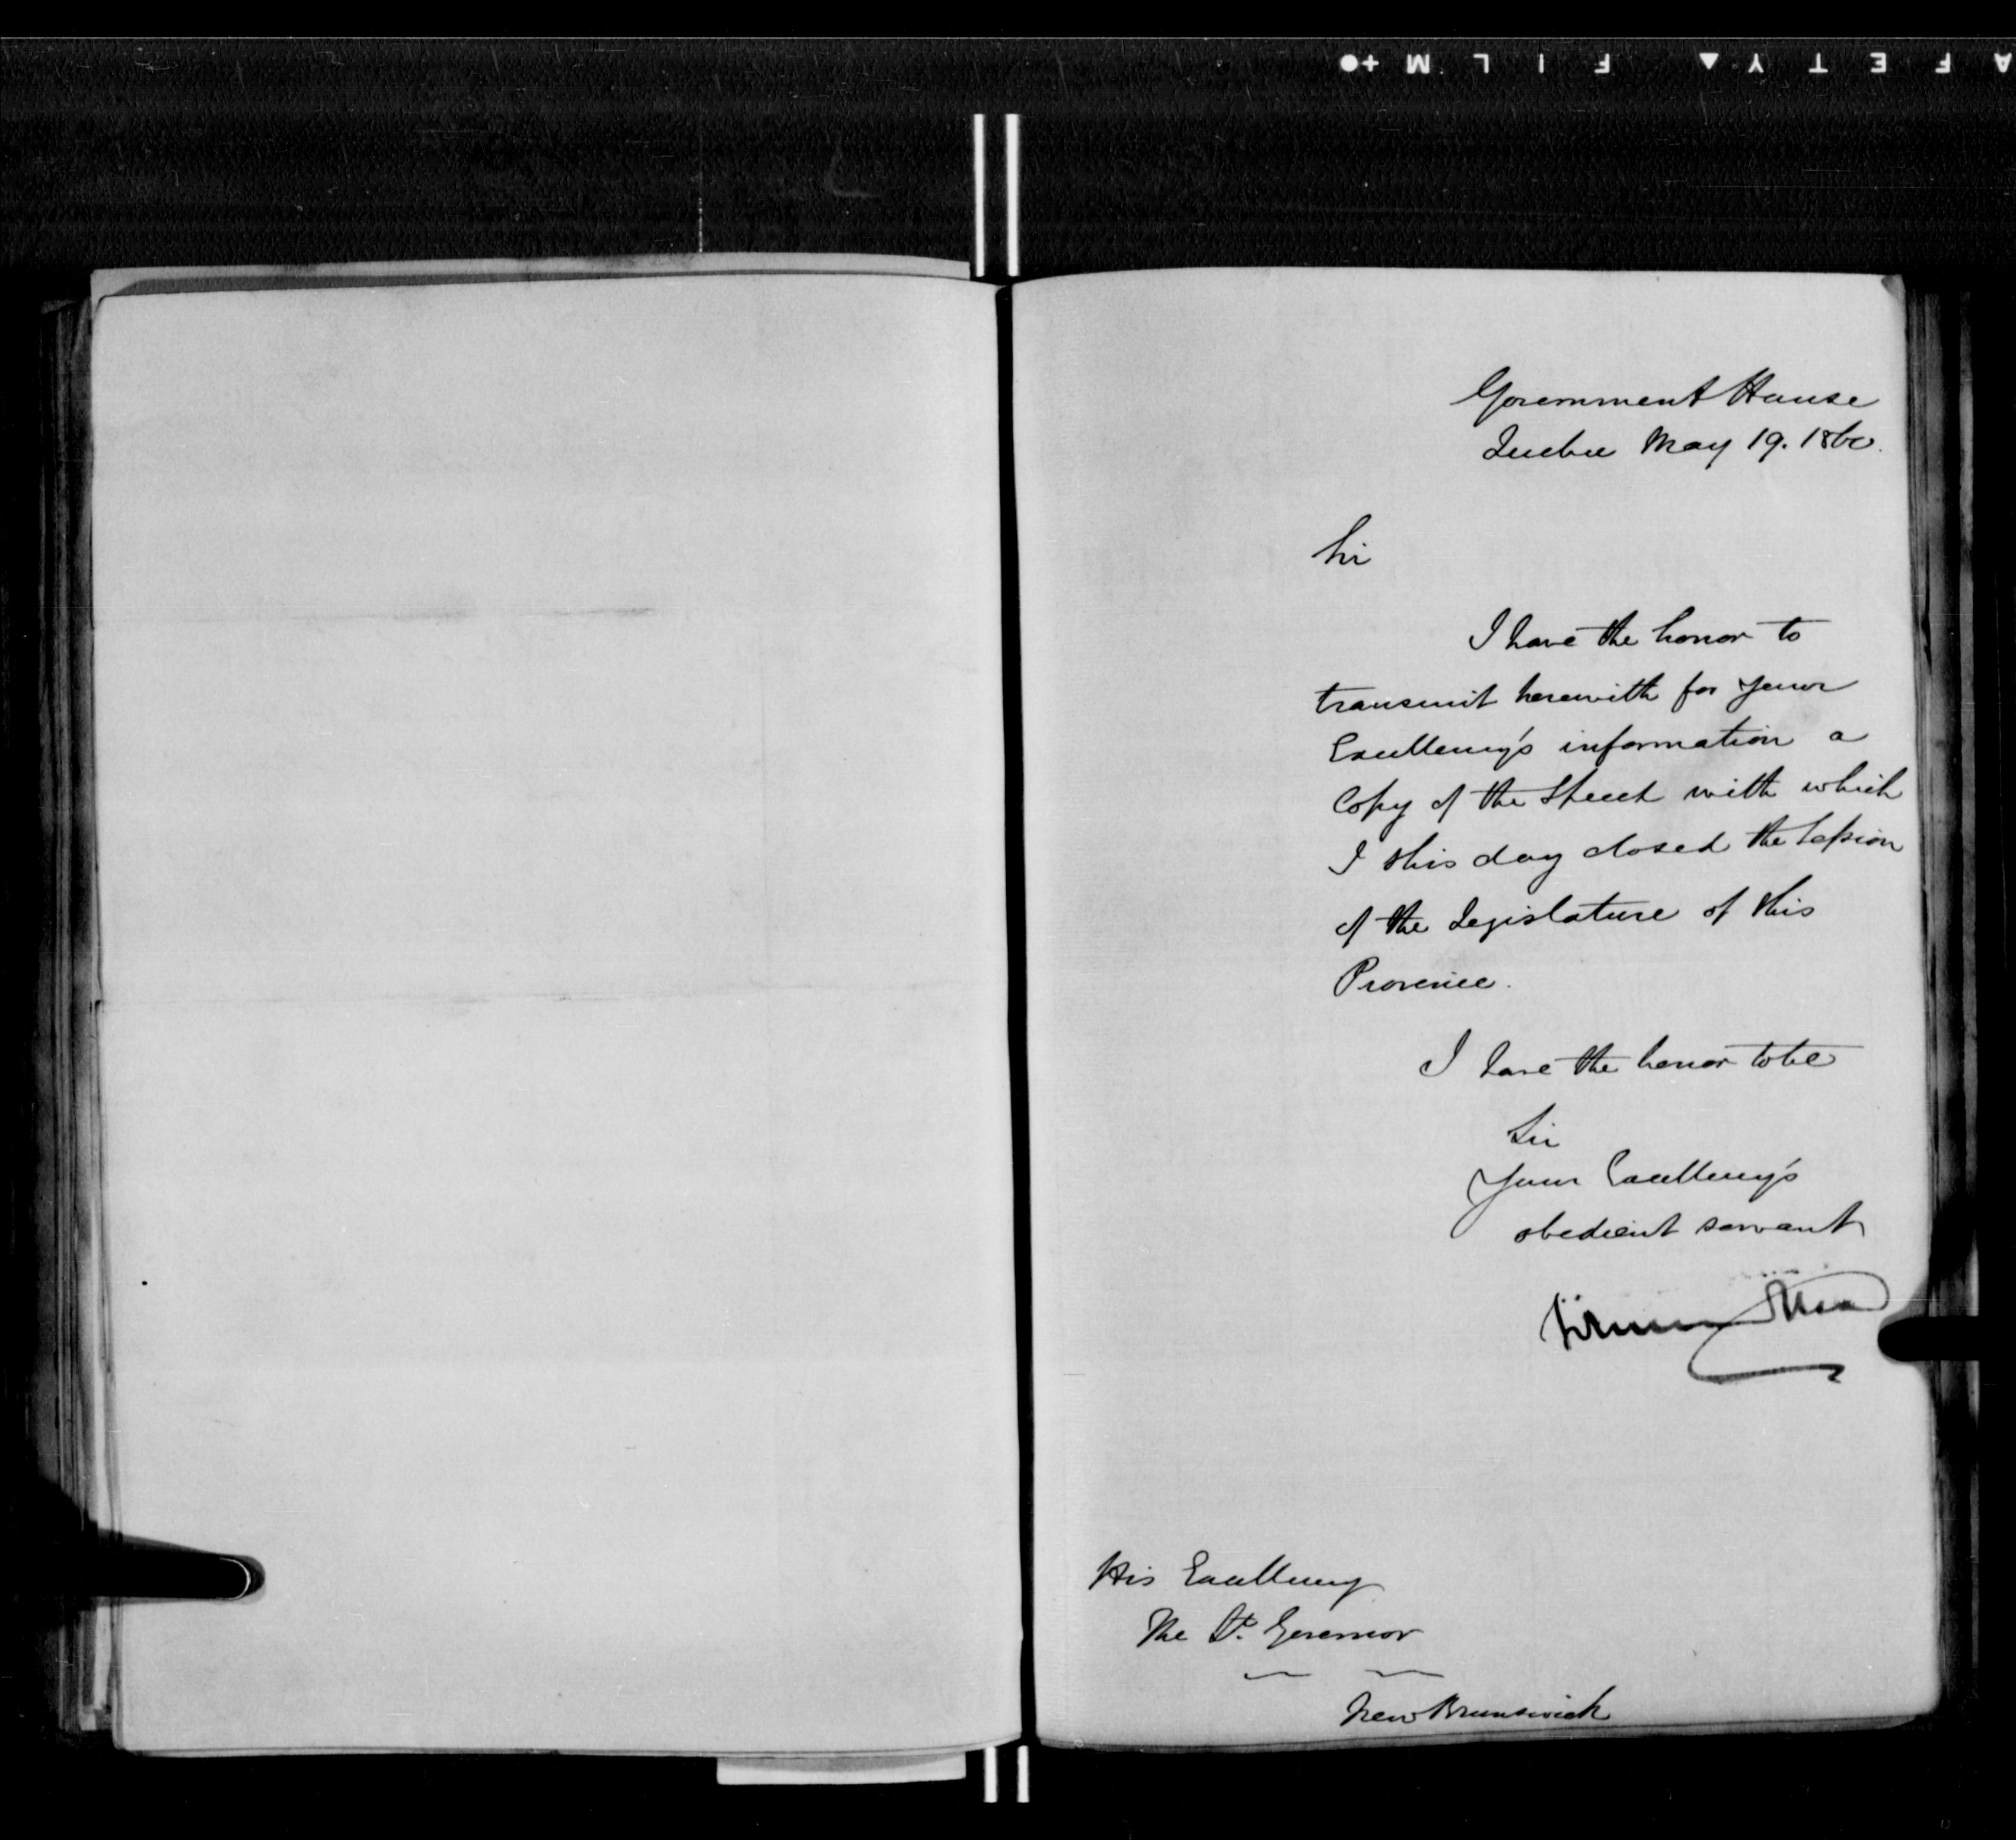 SAFETY▲ FILM+●
Government House
Quebec May 19. 1860.
Sir
I have the honor to
transmit herewith for your
Excellency's information a
Copy of the Speech with which
I this day closed the Session
of the Legislature of this
Province.
I have the honor to be
Sir
Your Excellency's
obedient servant
His Excellency
The Lt. Governor
New Brunswick